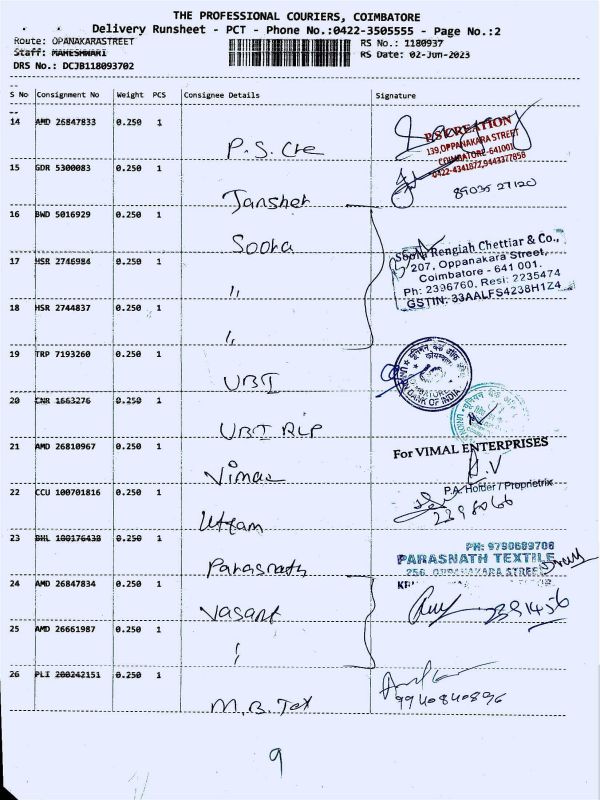 THE PROFESSIONAL COURIERS, COIMBATORE
Delivery Runsheet - PCT - Phone No.:0422-3505555 - Page No.:2
Route: OPANAKARASTREET
RS No.: 1180937
Staff: MAHESHWARI
RS Date: 02-Jun-2023
DRS No.: DCJB118093702
S No Consignment No Weight PCS Consignee Details Signature
14 AMD 26847833 0.250 1
P.S. Cre
P.S CREATION
139,OPPANAKARA STREET
COIMBATORE-641001
0422-4341872,9443377858
15 GDR 5300083 0.250 1
Janshek
89035 27120
16 BWD 5016929 0.250 1
Sooka
Rengiah Chettiar & Co.,
207, Oppanakara Street,
Coimbatore - 641 001.
Ph: 2396760, Resi: 2235474
GSTIN: 33AALFS4238H1Z4
17 HSR 2746984 0.250 1
"
18 HSR 2744837 0.250 1
"
19 TRP 7193260 0.250 1
UBI
UNION BANK OF INDIA
20 CNR 1663276 0.250 1
UBI RLP
21 AMD 26810967 0.250 1
Vimal
For VIMAL ENTERPRISES
P.A. Holder / Proprietrix
2398066
22 CCU 100701816 0.250 1
Uttam
23 BHL 100176438 0.250 1
Parasnath
PH: 9790689708
PARASNATH TEXTILE
256, OPPANAKARA STREET
24 AMD 26847834 0.250 1
Vasant
2391456
25 AMD 26661987 0.250 1
"
26 PLI 200242151 0.250 1
M.B. Tex
9940840896
9